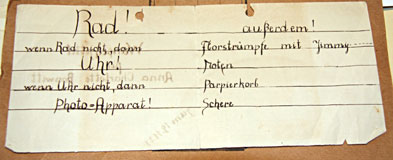 Rad!
wenn Rad nicht, dann
Uhr!
wenn Uhr nicht, dann
Photo-Apparat!
außerdem!
Florstrümpfe mit Jimmy
Noten
Papierkorb
Schere